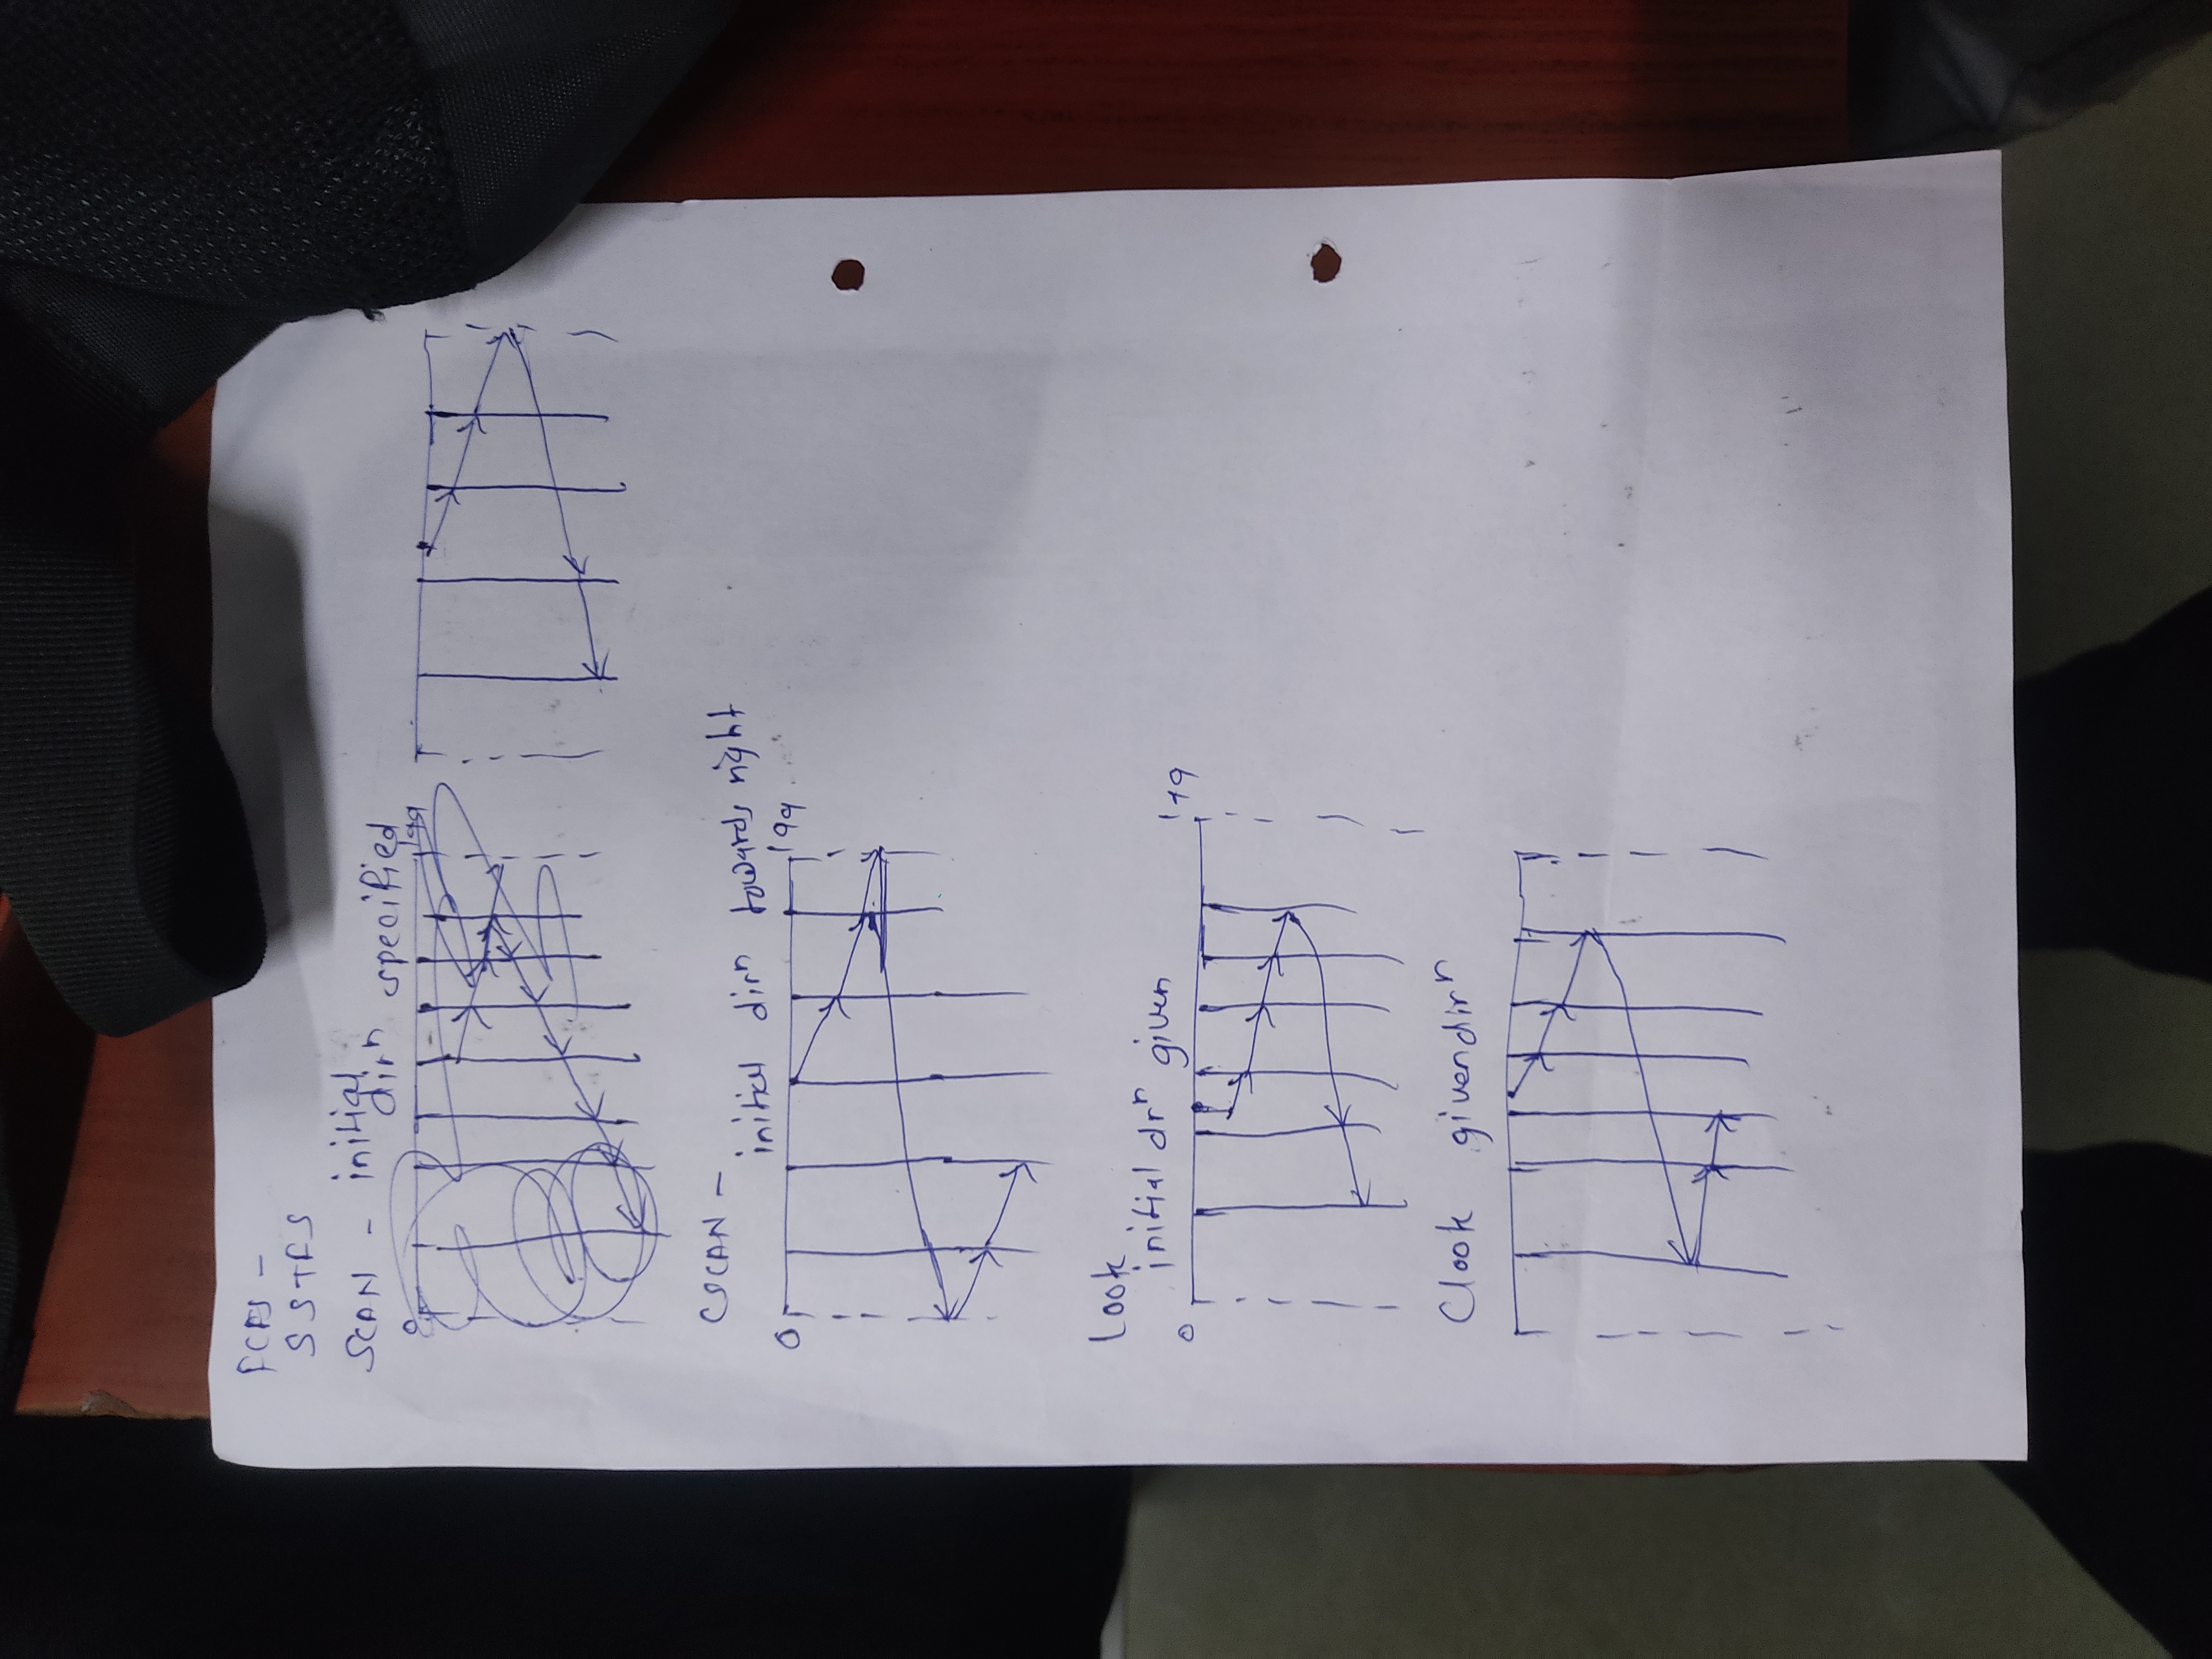 FCFS -
SSTFS
SCAN - initial
dirⁿ specified
0 199
CSCAN -
initial dirⁿ towards right
0 199
Look
initial drⁿ given
0 199
Clook given dirⁿ